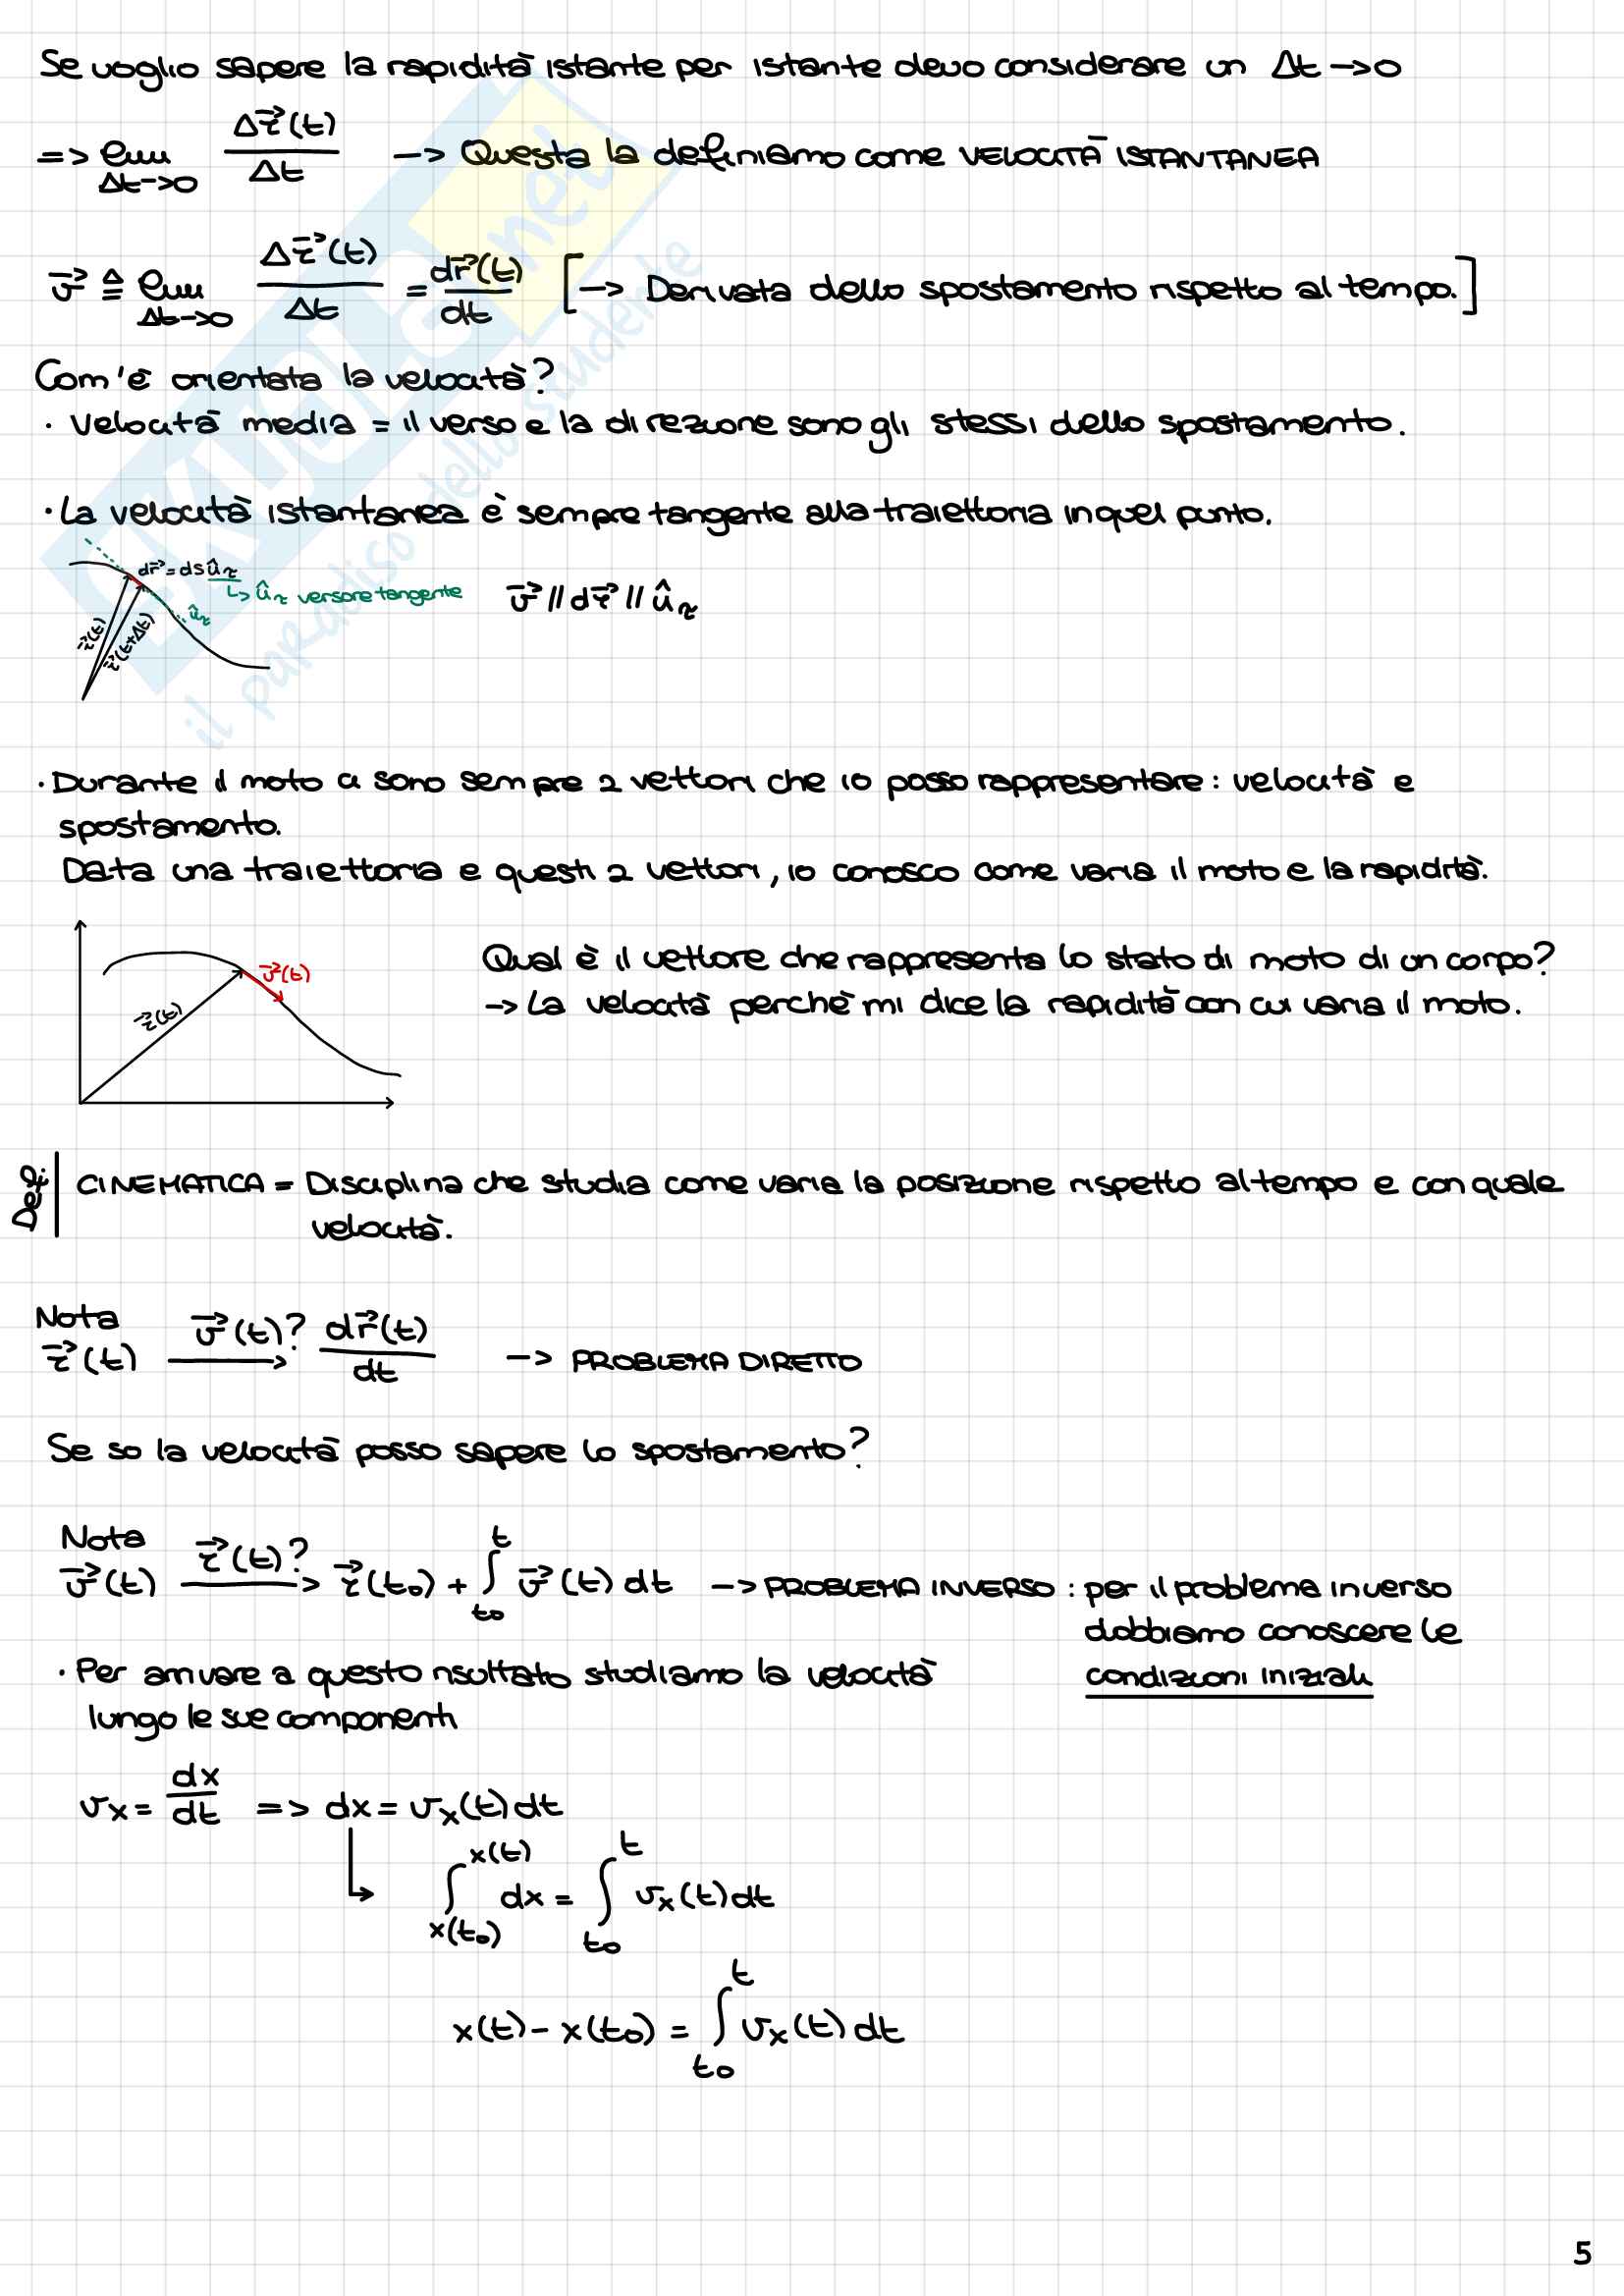 Se voglio sapere la rapidità istante per istante devo considerare un Δt → 0
=> lim Δt->0 Δr⃗(t)/Δt —> Questa la definiamo come VELOCITÀ ISTANTANEA
v⃗ ≜ lim Δt->0 Δr⃗(t)/Δt = dr⃗(t)/dt [—> Derivata dello spostamento rispetto al tempo.]
Com'è orientata la velocità?
· Velocità media = il verso e la direzione sono gli stessi dello spostamento.
· La velocità istantanea è sempre tangente alla traiettoria in quel punto.
dr⃗ = ds û_τ
↳ û_τ versore tangente
v⃗ // dr⃗ // û_τ
û_τ
r⃗(t)
r⃗(t+Δt)
· Durante il moto ci sono sempre 2 vettori che io posso rappresentare: velocità e
spostamento.
Data una traiettoria e questi 2 vettori, io conosco come varia il moto e la rapidità.
v⃗(t)
r⃗(t)
Qual è il vettore che rappresenta lo stato di moto di un corpo?
—> La velocità perchè mi dice la rapidità con cui varia il moto.
Def.
CINEMATICA = Disciplina che studia come varia la posizione rispetto al tempo e con quale
velocità.
Nota
r⃗(t) v⃗(t)? —> dr⃗(t)/dt —> PROBLEMA DIRETTO
Se so la velocità posso sapere lo spostamento?
Nota
v⃗(t) r⃗(t)? —> r⃗(t₀) + ∫_{t₀}^{t} v⃗(t) dt —> PROBLEMA INVERSO : per il problema inverso
dobbiamo conoscere le
condizioni iniziali
· Per arrivare a questo risultato studiamo la velocità
lungo le sue componenti
v_x = dx/dt => dx = v_x(t) dt
↳ ∫_{x(t₀)}^{x(t)} dx = ∫_{t₀}^{t} v_x(t) dt
x(t) - x(t₀) = ∫_{t₀}^{t} v_x(t) dt
5
SKUOLA.net
il paradiso dello studente